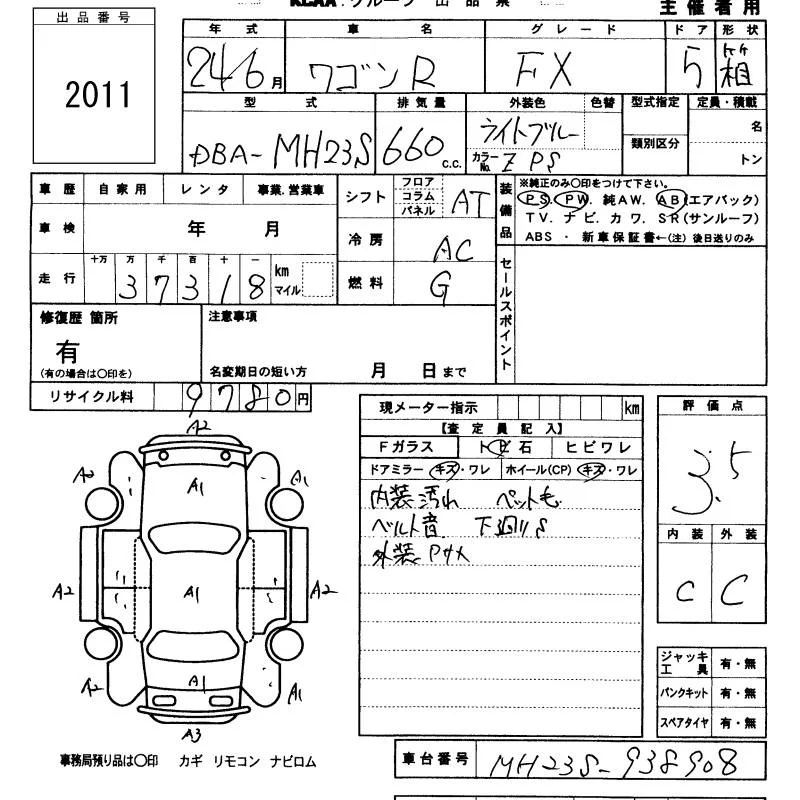 KCAA グループ 出品票
主催者用
出品番号
2011
年式 車名 グレード ドア 形状
24 6月 ワゴンR FX 5 箱
型式 排気量 外装色 色替 型式指定 定員・積載
DBA- MH23S 660 c.c. ライトブルー 類別区分 名
カラーNo. Z PS トン
車歴 自家用 レンタ 事業.営業車
車検 年 月
走行 十万 万 千 百 十 一
3 7 3 1 8 km マイル
シフト フロア コラム パネル AT
冷房 AC
燃料 G
装備品
※純正のみ〇印をつけて下さい。
PS. PW. 純AW. AB(エアバック)
TV. ナビ. カワ. SR(サンルーフ)
ABS ・ 新車保証書←(注) 後日送りのみ
セールスポイント
修復歴 箇所
有
(有の場合は〇印を)
注意事項
名変期日の短い方 月 日まで
リサイクル料 9 7 8 0 円
現メーター指示 km
【査定員記入】
Fガラス トビ石 ヒビワレ
ドアミラー キズ・ワレ ホイール(CP) キズ・ワレ
内装汚れ ペット毛
ベルト音 下廻りS
外装 Pサメ
評価点
3.5
内装 外装
C C
ジャッキ 工具 有・無
パンクキット 有・無
スペアタイヤ 有・無
A2
A2 A1 A1
A2 A1 A2
A2 A1 A1
A3
事務局預り品は〇印 カギ リモコン ナビロム
車台番号 MH23S-938908